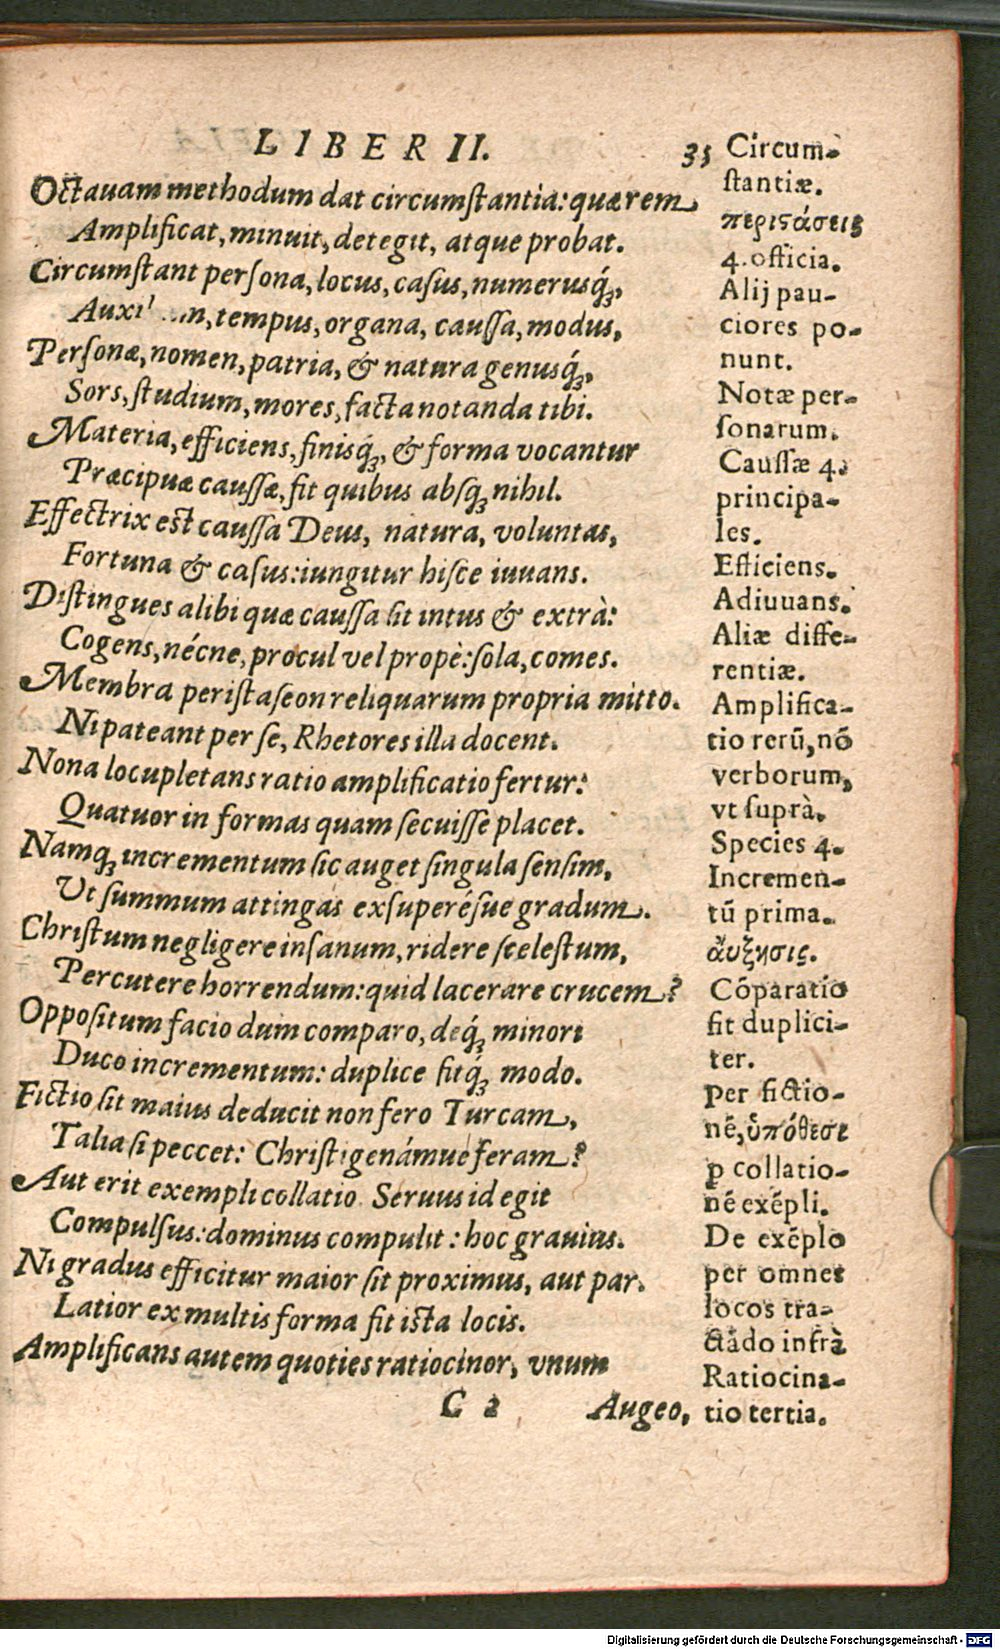 LIBER II. 35
Octauam methodum dat circumſtantia: quæ rem
Amplificat, minuit, detegit, atque probat.
Circumſtant perſona, locus, caſus, numerusq́;,
tempus, organa, cauſſa, modus,
Perſonæ, nomen, patria, & natura genusq́;,
Sors, ſtudium, mores, facta notanda tibi.
Materia, efficiens, finisq́;, & forma vocantur
Præcipuæ cauſſæ, fit quibus absq; nihil.
Effectrix est cauſſa Deus, natura, voluntas,
Fortuna & caſus: iungitur hiſce iuuans.
Diſtingues alibi quæ cauſſa ſit intus & extrà:
Cogens, nécne, procul vel propè: ſola, comes.
Membra periſtaſeon reliquarum propria mitto.
Ni pateant per ſe, Rhetores illa docent.
Nona locupletans ratio amplificatio fertur:
Quatuor in formas quam ſecuiſſe placet.
Namq; incrementum ſic auget ſingula ſenſim,
Ut ſummum attingas exſuperéſue gradum.
Chriſtum negligere inſanum, ridere ſceleſtum,
Percutere horrendum: quid lacerare crucem?
Oppoſitum facio dum comparo, deq́; minori
Duco incrementum: duplice fitq́; modo.
Fictio ſit maius deducit non fero Turcam,
Talia ſi peccet: Chriſtigenámue feram?
Aut erit exempli collatio. Seruus id egit
Compulſus: dominus compulit: hoc grauius.
Ni gradus efficitur maior ſit proximus, aut par.
Latior ex multis forma fit iſta locis.
Amplificans autem quoties ratiocinor, vnum
C 2 Augeo,
Circum-
ſtantiæ.
περιϛάσεις
4. officia.
Alij pau-
ciores po-
nunt.
Notæ per-
ſonarum.
Cauſſæ 4.
principa-
les.
Efficiens.
Adiuuans.
Aliæ diffe-
rentiæ.
Amplifica-
tio rerū, nō
verborum,
vt ſuprà.
Species 4.
Incremen-
tū prima.
ἄυξησις.
Cōparatio
fit duplici-
ter.
Per fictio-
nē, ὑπόθεσι
ꝑ collatio-
nē exēpli.
De exēplo
per omnes
locos tra-
ctādo infrà
Ratiocina-
tio tertia.
Digitalisierung gefördert durch die Deutsche Forschungsgemeinschaft - DFG